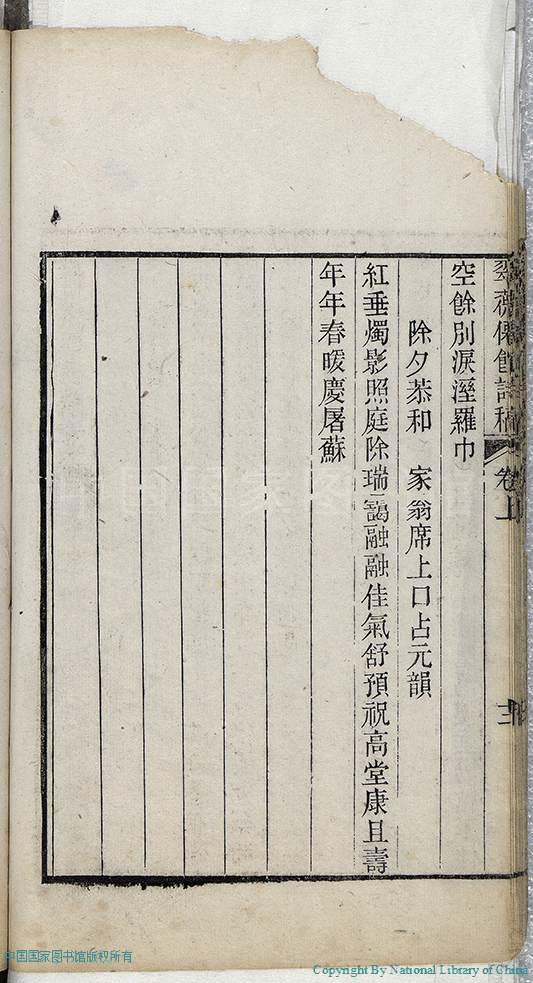 詩稿
卷上
空餘別淚溼羅巾
除夕恭和 家翁席上口占元韻
紅垂燭影照庭除瑞靄融融佳氣舒預祝高堂康且壽
年年春暖慶屠蘇
中国国家图书馆版权所有
Copyright By National Library of China